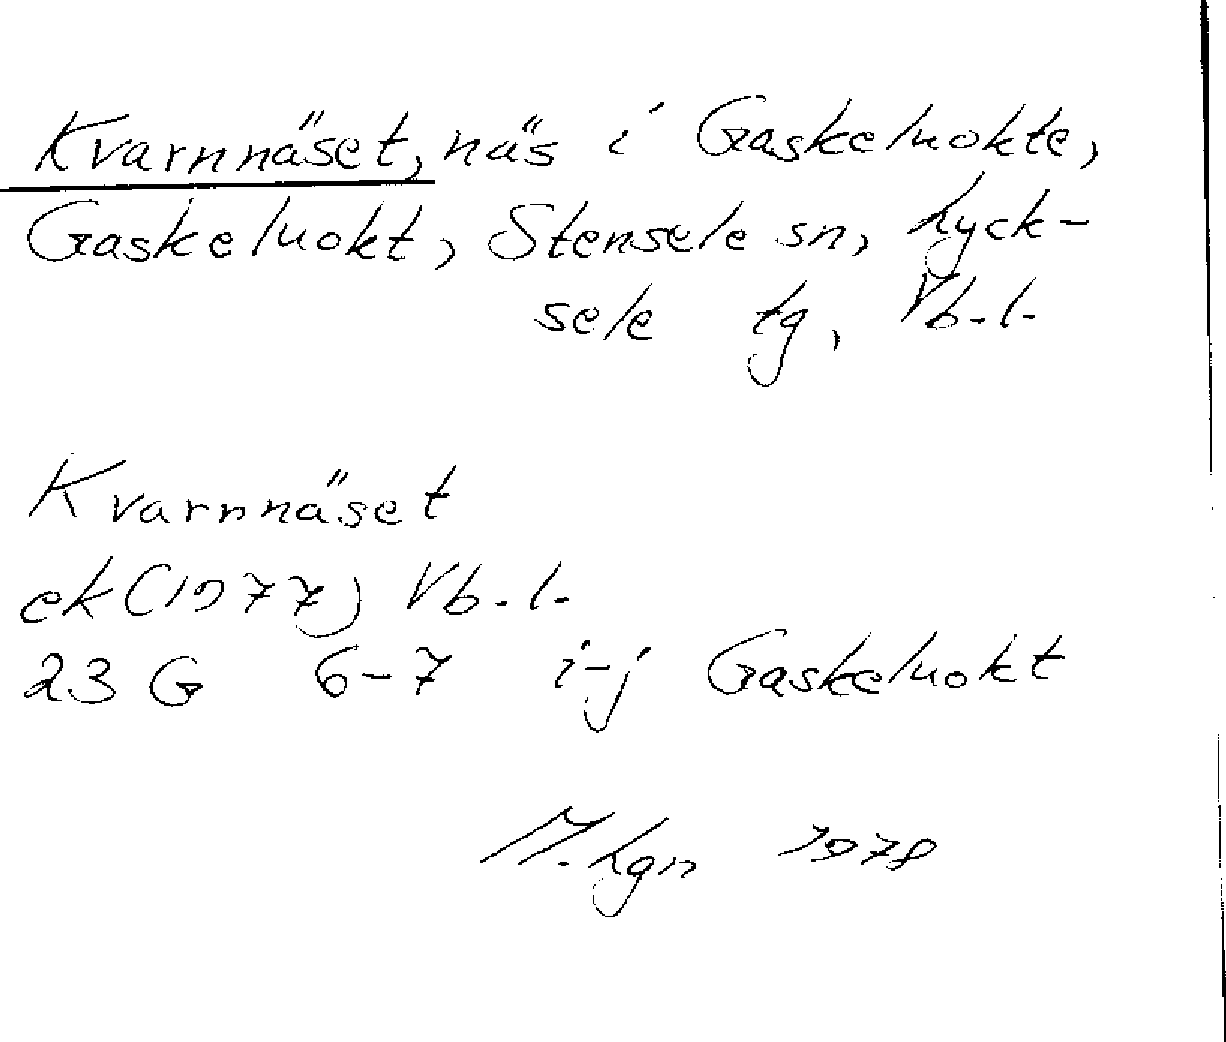 Kvarnnäset, näs i Gaskeluokte,
Gaskeluokt, Stensele sn, Lyck-
sele tg, Vb.l.
Kvarnnäset
ek(1977) Vb.l.
23 G 6-7 i-j Gaskeluokt
M.Lgn 1978